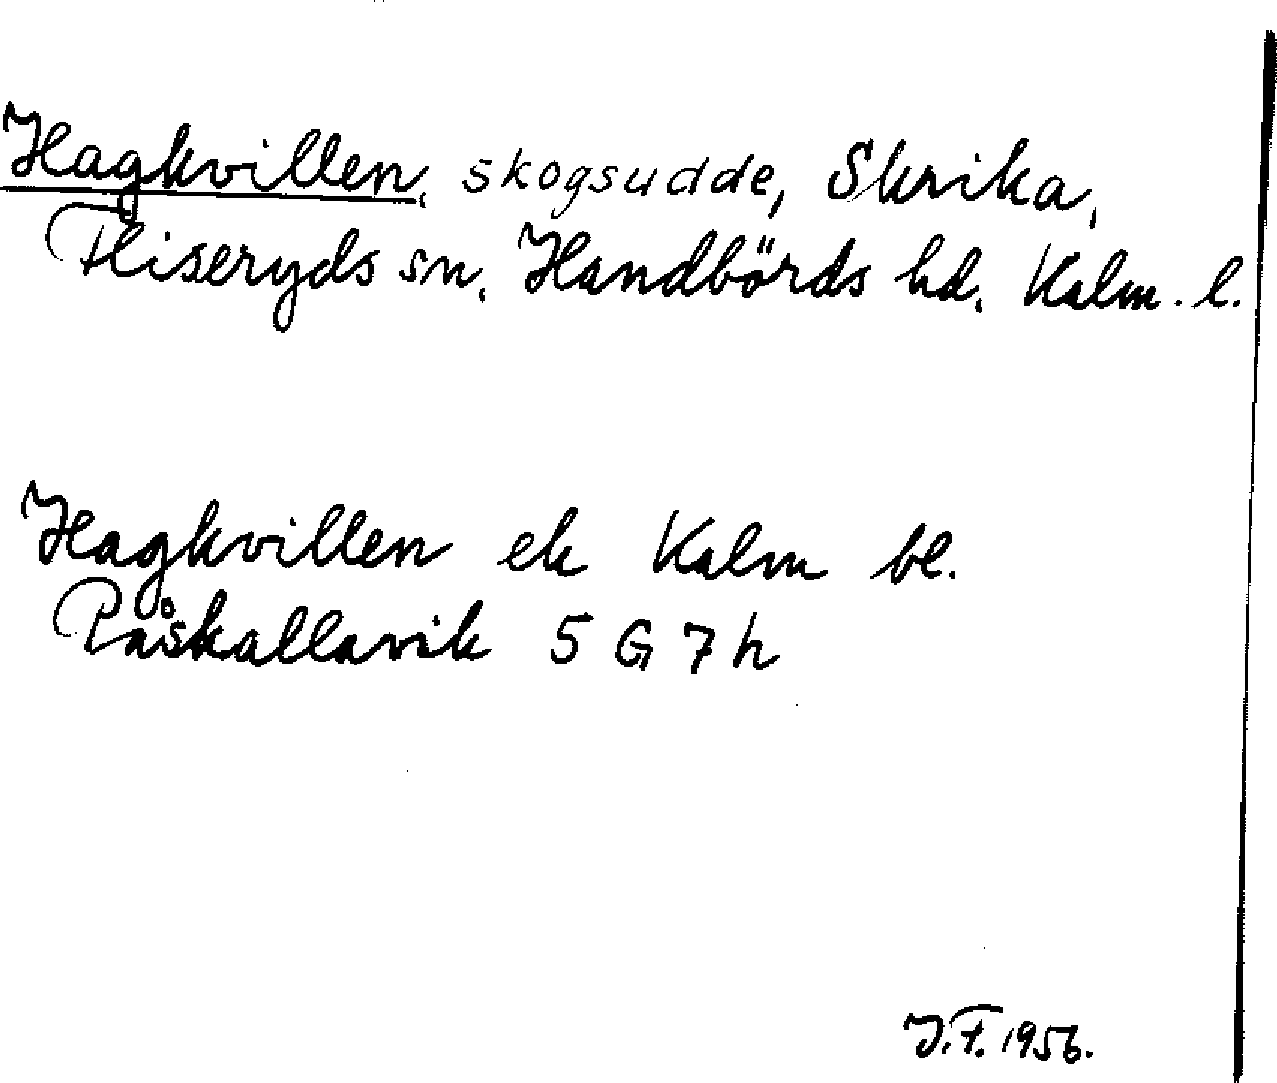 Hagkvillen, skogsudde, Skrika,
Fliseryds sn, Handbörds hd, Kalm. l.
Hagkvillen ek Kalm bl.
Påskallavik 5 G 7 h
J.F. 1956.